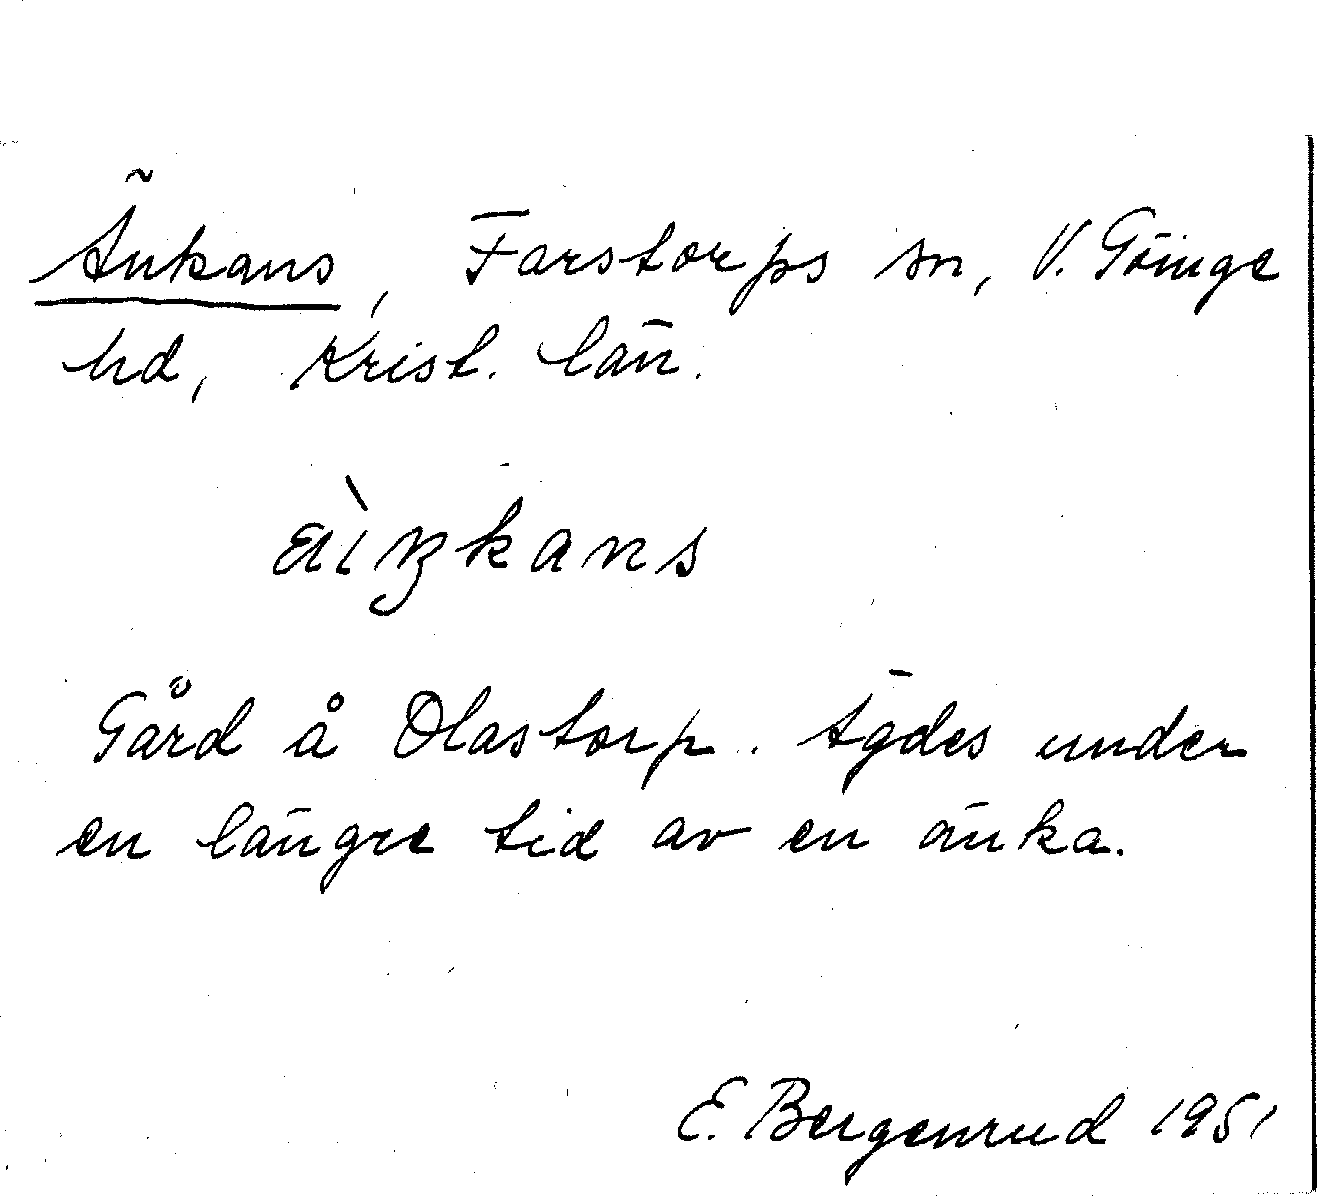 Änkans, Farstorps sn, V. Göinge
hd, Krist. län.
æìŋkans
Gård å Olastorp. Ägdes under
en längre tid av en änka.
E. Bergenrud 1951